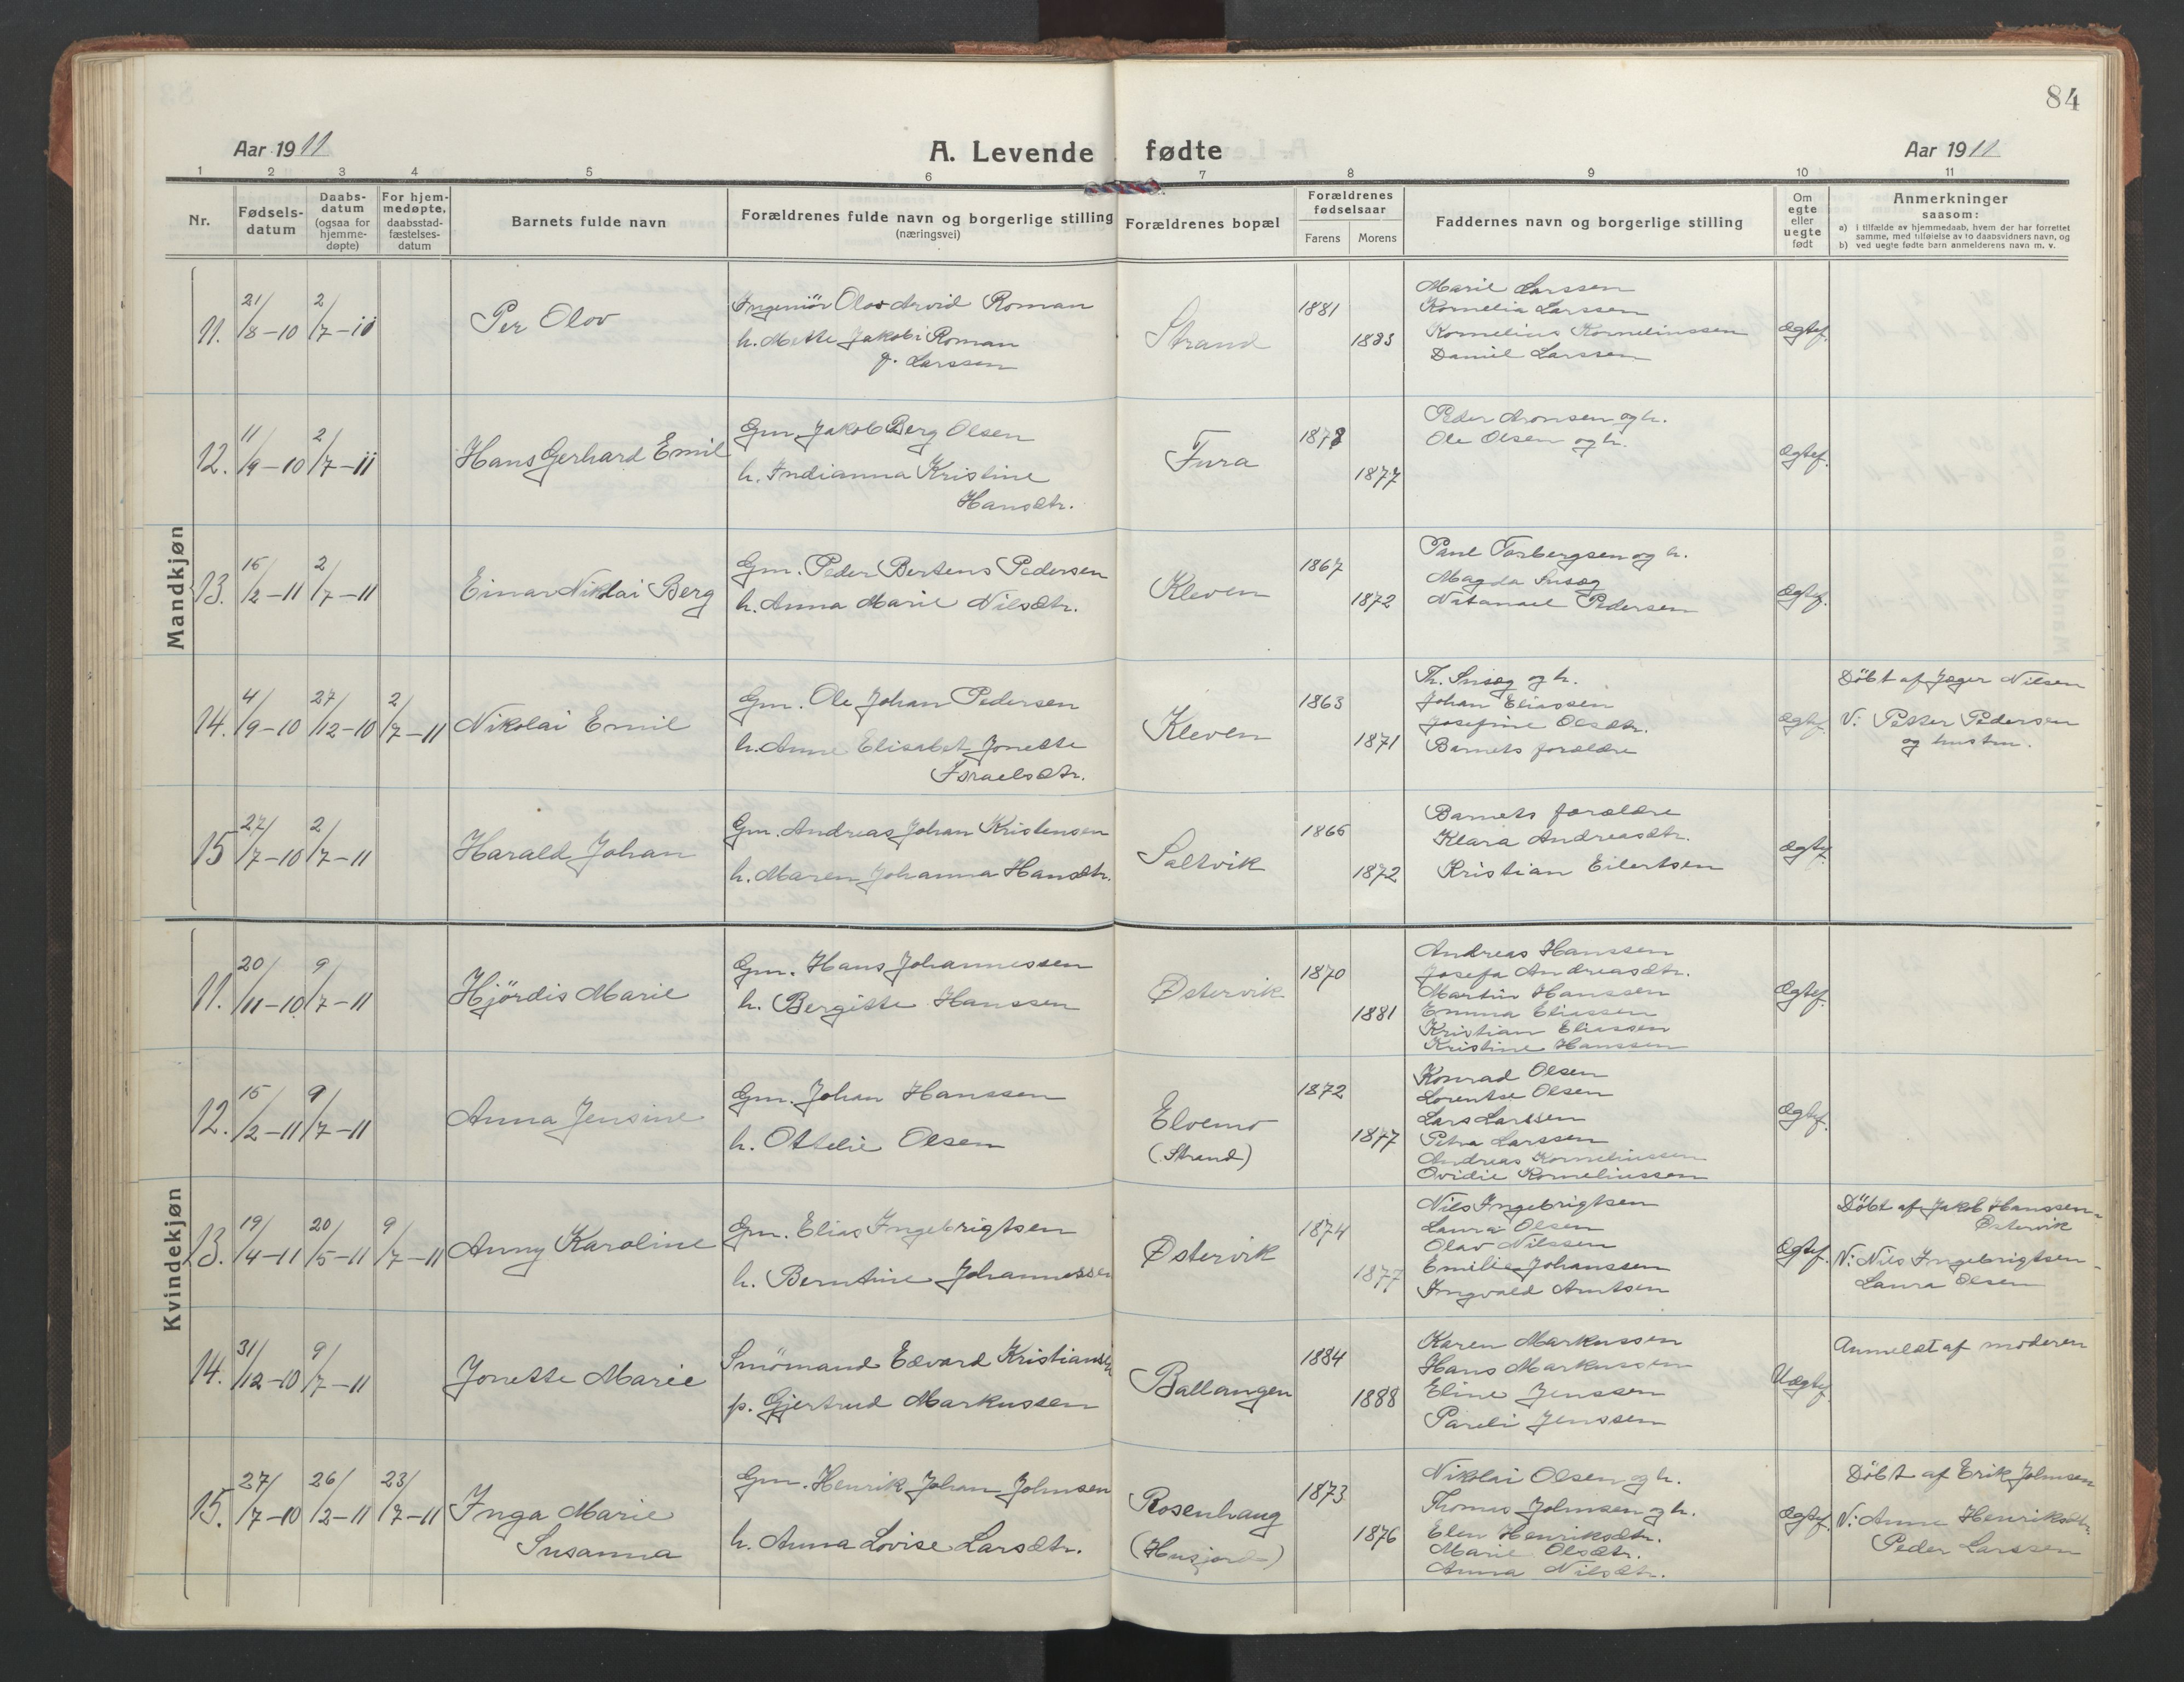 84
Aar 1911
A. Levende fødte
Aar 1911
1 2 3 4 5 6 7 8 9 10 11
Nr.
Fødsels-
datum
Daabs-
datum
(ogsaa for
hjemme-
døpte)
For hjem-
medøpte,
daabsstad-
fæstelses-
datum
Barnets fulde navn
Forældrenes fulde navn og borgerlige stilling
(næringsvei)
Forældrenes bopæl
Forældrenes
fødselsaar
Farens Morens
Faddernes navn og borgerlige stilling
Om
egte
eller
uegte
født
Anmerkninger
saasom:
a) i tilfælde av hjemmedaab, hvem der har forrettet
samme, med tilføielse av to daabsvidners navn, og
b) ved uegte fødte barn anmelderens navn m. v.
Mandkjøn
11. 21/8-10 2/7-11
Per Olov
Ingeniör Olov Arvid Roman
h. Mette Jakobi Roman
f. Larssen
Strand
1881
1883
Marie Larssen
Kornelia Larssen
Kornelius Korneliussen
Daniel Larssen
Ægtef.
12. 11/9-10 2/7-11
Hans Gerhard Emil
Gm. Jakob Berg Olsen
h. Indianna Kristine
Hansdtr.
Fura
1878
1877
Peder Aronsen og h.
Ole Olsen og h.
Ægtef.
13. 16/2-11 2/7-11
Einar Nikolai Berg
Gm. Peder Bertens Pedersen
h. Anna Marie Nilsdtr.
Kleven
1867
1872
Paul Torbergsen og h.
Magda Susæg
Natanael Pedersen
Ægtef.
14. 4/9-10 27/12-10 2/7-11
Nikolai Emil
Gm. Ole Johan Pedersen
h. Anne Elisabet Jonette
Israelsdtr.
Kleven
1863
1871
Th. Susæg og h.
Johan Eliassen
Josefine Olsdtr.
Barnets forældre
Ægtef.
Döbt af Jæger Nilsen
V: Petter Pedersen
og hustru.
15 27/7-10 2/7-11
Harald Johan
Gm. Andreas Johan Kristensen
h. Maren Johanna Hansdtr.
Saltvik
1866
1872
Barnets forældre
Klara Andreasdtr.
Kristian Eilertsen
Ægtef.
Kvindekjøn
11. 20/11-10 9/7-11
Hjördis Marie
Gm. Hans Johannessen
h. Bergitte Hanssen
Østervik
1870
1881
Andreas Hanssen
Josefa Andreasdtr.
Martin Hanssen
Emma Eliassen
Kristian Eliassen
Kristine Hanssen
Ægtef.
12. 15/2-11 9/7-11
Anna Jensine
Gm. Johan Hanssen
h. Ottelie Olsen
Elvemo
(Strand)
1872
1877
Konrad Olsen
Lorentse Olsen
Lars Larssen
Petra Larssen
Andreas Korneliussen
Ovidie Korneliussen
Ægtef.
13. 19/4-11 20/5-11 9/7-11
Anny Karoline
Gm. Elias Ingebrigtsen
h. Berntine Johannessen
Østervik
1874
1877
Nils Ingebrigtsen
Laura Olsen
Olav Nilssen
Emilie Johanssen
Ingvald Arntsen
Ægtef.
Döbt af Jakob Hanssen-
Østervik
V: Nils Ingebrigtsen-
Laura Olsen
14. 31/12-10 9/7-11
Jonette Marie
Smömand Edvard Kristiansen
p. Gjertrud Markussen
Ballangen
1884
1888
Karen Markussen
Hans Markussen
Eline Jenssen
Pareli Jenssen
Uægtef.
Anmeldt af moderen
15. 27/7-10 26/2-11 23/7-11
Inga Marie
Susanna
Gm. Henrik Johan Johnsen
h. Anna Lovise Larsdtr.
Rosenhaug
(Husjord)
1873
1876
Nikolai Olsen og h.
Thomas Johnsen og h.
Elen Henriksdtr.
Marie Olsdtr.
Anna Nilsdtr.
Ægtef.
Döbt af Erik Johnsen
V: Anna Henriksdtr.
Peder Larssen